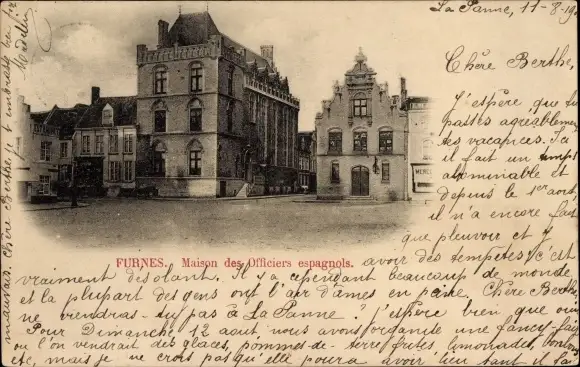 La Panne, 11-8-19
Chère Berthe,
J'espère que tu
passes agreablement
tes vacances. Ici
il fait un temps
abominable et
depuis le 1er août
il n'a encore fait
que pleuvoir et
FURNES. Maison des Officiers espagnols.
avoir des tempêtes; c'est
vraiment désolant. Il y a cependant beaucoup de monde
et la plupart des gens ont l'air d'âmes en peine. Chère Berthe
ne vendras-tu pas à La Panne? J'espère bien que oui
Pour Dimanche 12 aout nous avons organise une fancy-fair
ou l'on vendrait des glaces, pommes-de-terre frites limonades, bonbons
etc, mais je ne crois pas qu'elle poura avoir lieu tant il fait
mauvais. Chère Berthe je t'embrasse bien